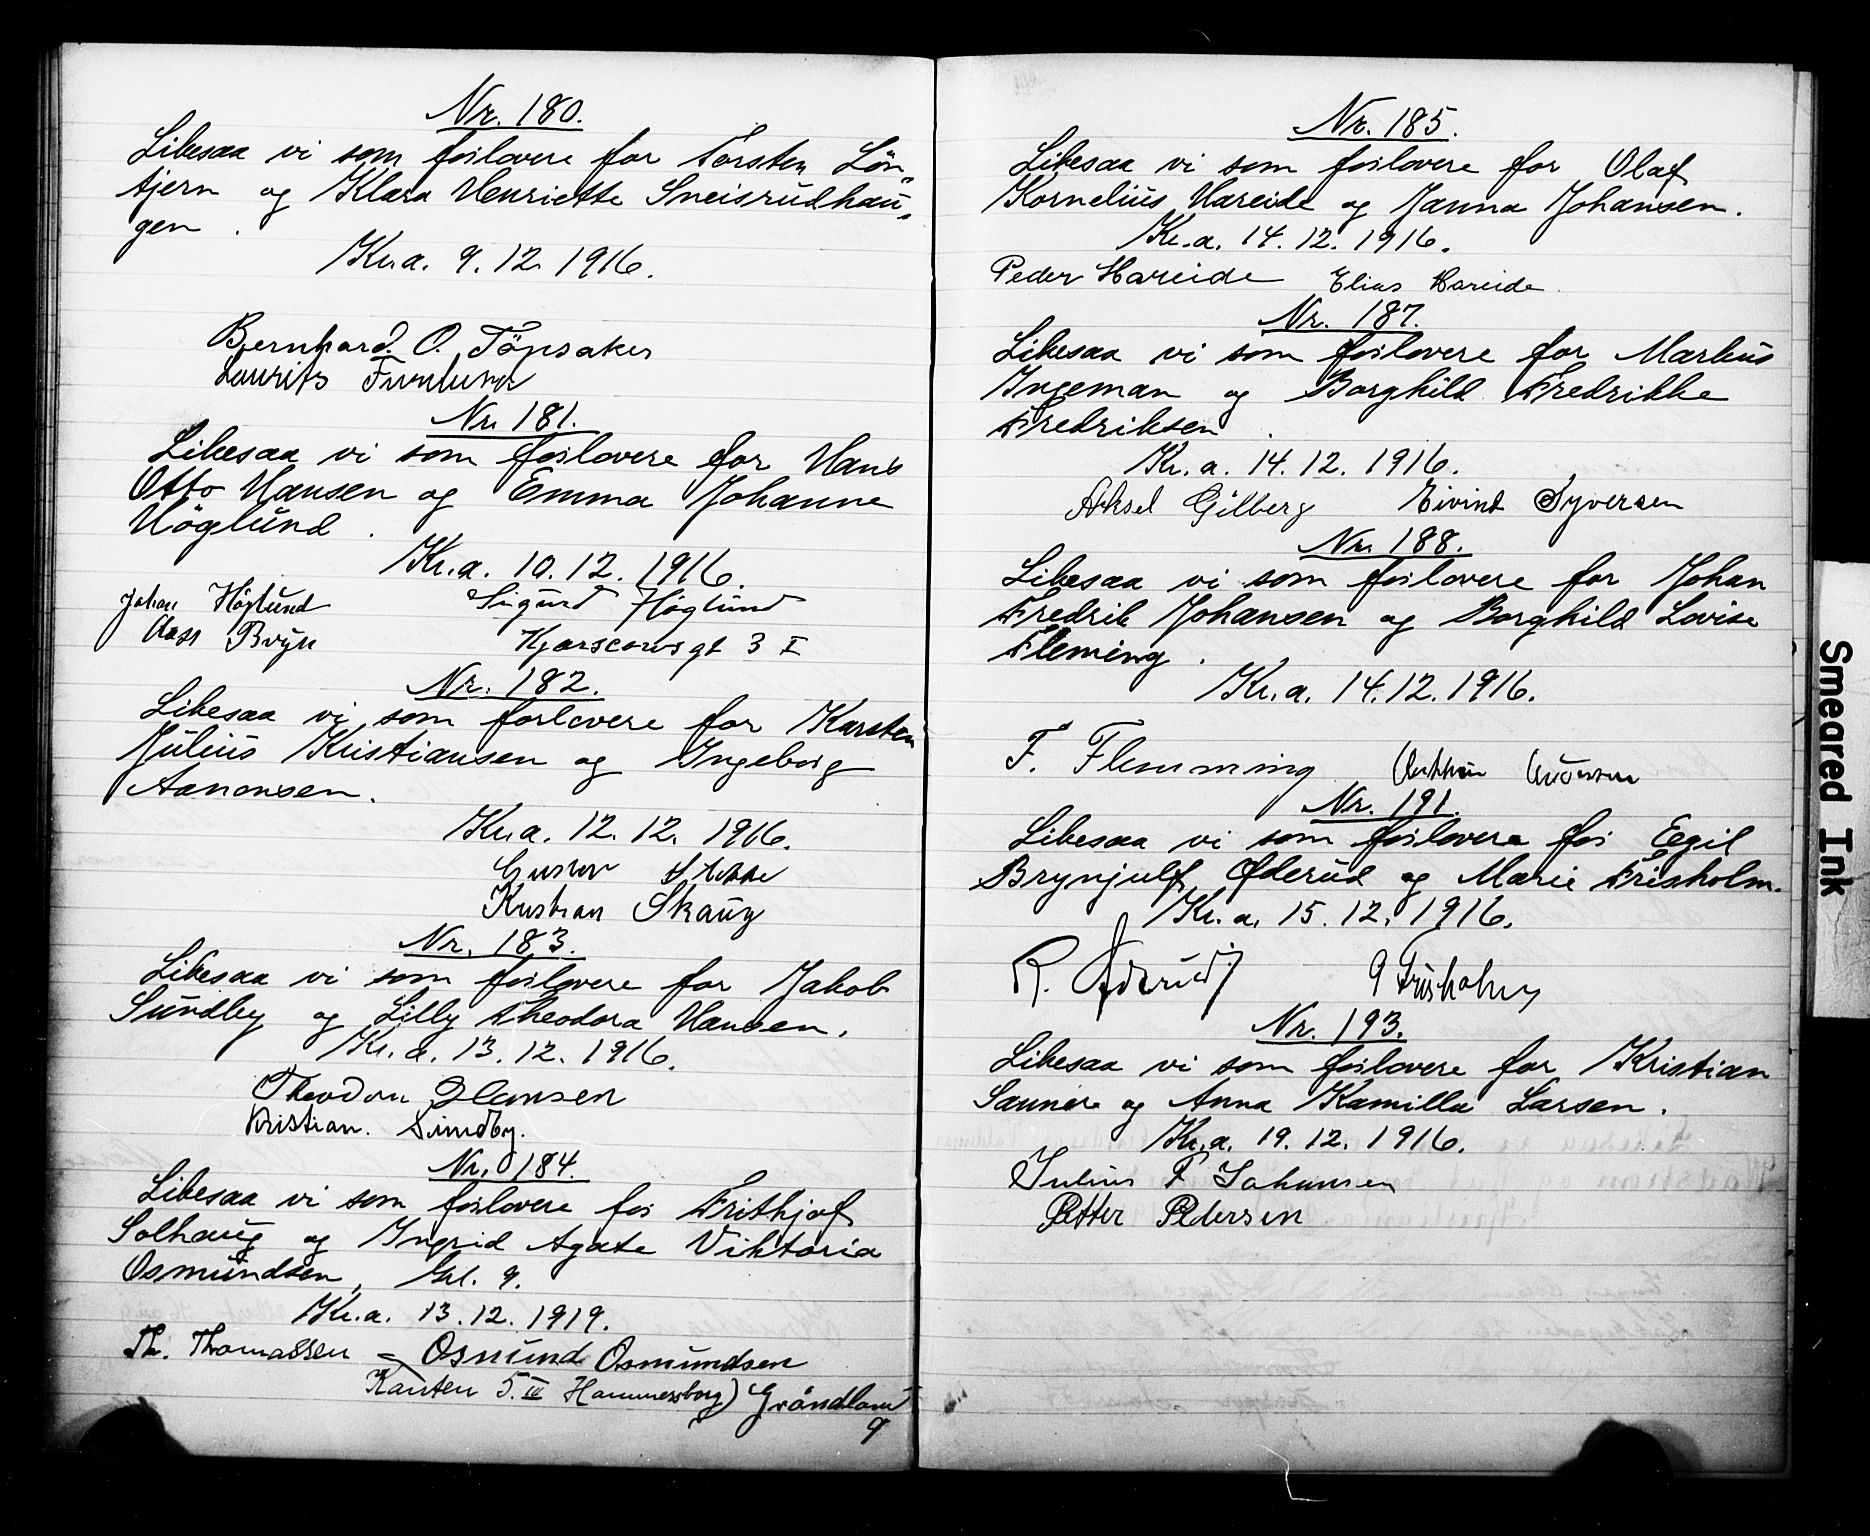 Nr. 180.
Likesaa vi som forlovere for Torsten Lön-
tjern og Klara Henriette Sneisrudhau-
gen.
Kr.a. 9.12. 1916.
Bernhard. O. Tönsaker
Laurits Furulund
Nr. 181.
Likesaa vi som forlovere for Hans
Otto Hansen og Emma Johanne
Höglund.
Kr.a. 10.12.1916.
Johan Höglund Sigurd Höglund
Bryn 3 I
Nr. 182.
Likesaa vi som forlovere for Karsten
Julius Kristiansen og Ingeborg
Aanonsen.
Kr.a. 12.12. 1916.
Gustav
Kristian Skaug
Nr. 183.
Likesaa vi som forlovere for Jakob
Sundby og Lilly Theodora Hansen.
Kr.a. 13.12. 1916.
Theodor Hansen
Kristian. Sundby.
Nr. 184.
Likesaa vi som forlovere for Frithjof
Solhaug og Ingrid Agate Viktoria
Osmundsen, Grl. 9.
Kr.a. 13.12.1919.
Th. Thomassen = Osmund Osmundsen
Kanten 5. III Hammersborg) Gröndland
9
Nr. 185.
Likesaa vi som forlovere for Olaf
Kornelius Hareide og Janna Johansen.
Kr.a. 14.12. 1916.
Peder Hareide Elias Hareide
Nr. 187.
Likesaa vi som forlovere for Markus
Ingeman og Borghild Fredrikke
Fredriksen.
Kr.a. 14.12. 1916.
Aksel Gilberg Eivind Syversen
Nr. 188.
Likesaa vi som forlovere for Johan
Fredrik Johansen og Borghild Lovise
Fleming.
Kr.a. 14.12.1916.
F. Flemming
Nr. 191.
Likesaa vi som forlovere for Egil
Brynjulf Öfderud og Marie Frisholm.
Kr.a. 15.12. 1916.
R. Frisholm
Nr. 193.
Likesaa vi som forlovere for Kristian
Sannere og Anna Kamilla Larsen.
Kr.a. 19.12. 1916.
Julius F Johansen
Petter Pedersen
Smeared Ink